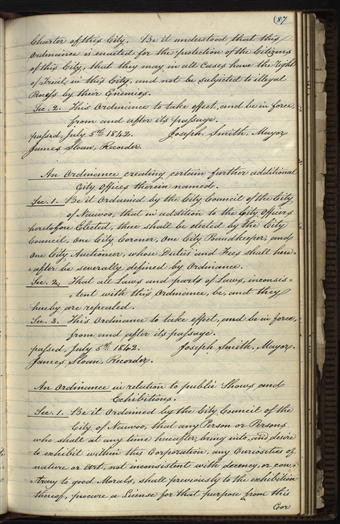 87
Charter of this City. Be it understood that this
Ordinance is enacted for the protection of the Citizens
of this City, that they may in all Cases have the Right
of Trial, in this City, and not be subjected to illegal
Process by their Enemies.
Sec. 2. This Ordinance to take effect, and be in force,
from and after its passage.
passed, July 5th 1842. Joseph Smith, Mayor
James Sloan, Recorder.
An Ordinance creating certain further additional
City Offices therein named.
Sec. 1. Be it Ordained by the City Council of the City
of Nauvoo, that in addition to the City Officers
heretofore Elected, there shall be elected by the City
Council, one City Coroner, one City Poundkeeper, and
one City Auctioneer, whose Duties and Fees shall here-
after be severally defined by Ordinance.
Sec. 2. That all Laws and parts of Laws, inconsis-
tent with this Ordinance, be and they
hereby are repealed.
Sec. 3. This Ordinance to take effect, and be in force,
from and after its passage.
passed, July 5th 1842. Joseph Smith, Mayor.
James Sloan, Recorder.
An Ordinance in relation to public Shows and
Exhibitions.
Sec. 1. Be it Ordained by the City Council of the
City of Nauvoo, that any Person or Persons
who shall at any time hereafter bring into, and desire
to exhibit within this Corporation, any Curiosities of
nature or art, not inconsistent with decency, or con-
trary to good Morals, shall previously to the exhibition
thereof, procure a License for that purpose from this
Cor